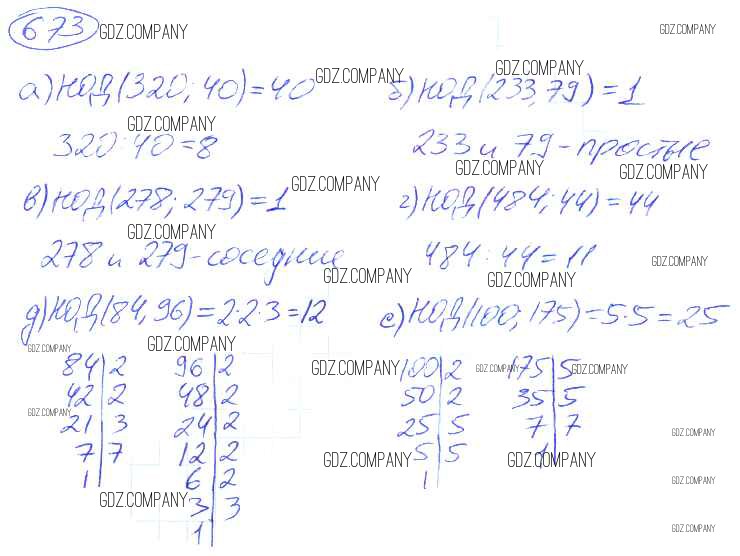 673 GDZ.COMPANY GDZ.COMPANY
а) НОД(320; 40) = 40 GDZ.COMPANY
б) НОД(233, 79) = 1 GDZ.COMPANY
320 : 40 = 8 GDZ.COMPANY
233 и 79 - простые GDZ.COMPANY GDZ.COMPANY
в) НОД(278; 279) = 1 GDZ.COMPANY
г) НОД(484; 44) = 44
278 и 279 - соседние GDZ.COMPANY GDZ.COMPANY
484 : 44 = 11 GDZ.COMPANY GDZ.COMPANY
д) НОД(84, 96) = 2·2·3 = 12
е) НОД(100; 175) = 5·5 = 25
GDZ.COMPANY GDZ.COMPANY
84 | 2 96 | 2
42 | 2 48 | 2
GDZ.COMPANY
21 | 3 24 | 2
7 | 7 12 | 2
1 6 | 2
GDZ.COMPANY
3 | 3
1
GDZ.COMPANY GDZ.COMPANY GDZ.COMPANY
100 | 2 175 | 5
50 | 2 35 | 5
25 | 5 7 | 7 GDZ.COMPANY
5 | 5 1
GDZ.COMPANY GDZ.COMPANY
1 GDZ.COMPANY
GDZ.COMPANY